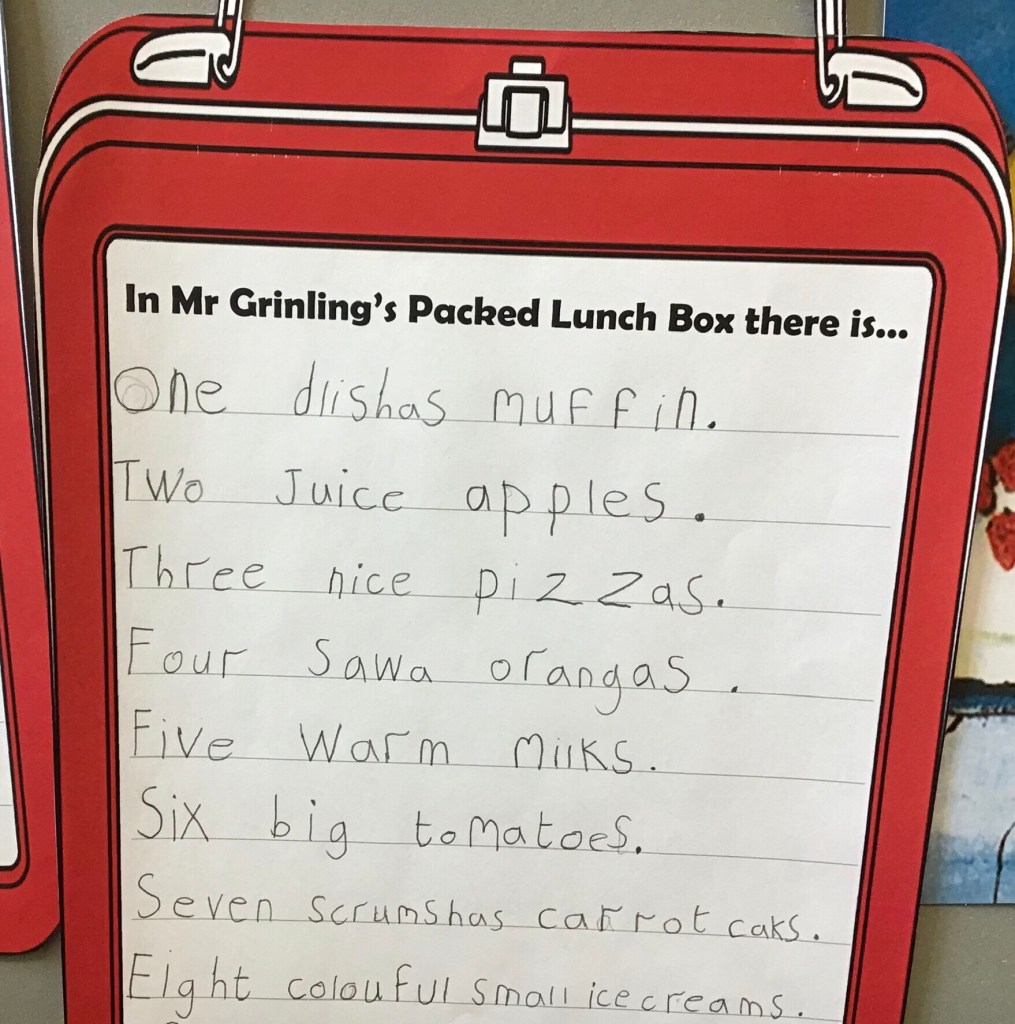 In Mr Grinling's Packed Lunch Box there is...
One dlishas muffin.
Two Juice apples.
Three nice pizzas.
Four sawa orangas.
Five warm milks.
Six big tomatoes.
Seven scrumshas carrot caks.
Eight colouful small ice creams.